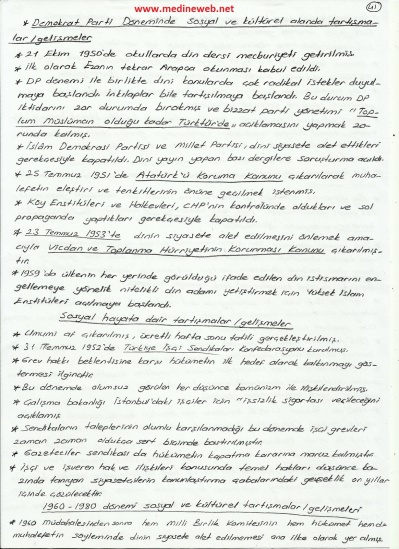 www.medineweb.net
41
* Demokrat Parti Döneminde sosyal ve kültürel alanda tartışma-
lar/gelişmeler
* 21 Ekim 1950'de okullarda din dersi mecburiyeti getirilmiş.
* İlk olarak Ezanın tekrar Arapça okunması kabul edildi.
* DP dönemi ile birlikte dini konularda çok radikal istekler duyul-
maya başlandı inkılaplar bile tartışılmaya başlandı. Bu durum DP
iktidarını zor durumda bırakmış ve bizzat parti yönetimi "Top-
lum Müslüman olduğu kadar Türktür'de" açıklamasını yapmak zo-
runda kalmış.
* İslâm Demokrasi Partisi ve Millet Partisi, dini siyasete alet ettikleri
gerekçesiyle kapatıldı. Dini yayın yapan bazı dergilere soruşturma açıldı.
* 25 Temmuz 1951'de Atatürk'ü Koruma Kanunu çıkarılarak muha-
lefetin eleştiri ve tenkitlerinin önüne geçilmek istenmiş.
* Köy Enstitüleri ve Halkevleri, CHP'nin kontrolünde oldukları ve sol
propaganda yaptıkları gerekçesiyle kapatıldı.
* 23 Temmuz 1953'te dinin siyasete alet edilmesini önlemek ama-
cıyla Vicdan ve Toplanma Hürriyetinin Korunması Kanunu çıkarılmış-
tır.
* 1959'da ülkenin her yerinde görüldüğü ifade edilen din istismarını en-
gellemeye yönelik nitelikli din adamı yetiştirmek için Yüksek İslam
Enstitüleri açılmaya başlandı.
Sosyal hayata dair tartışmalar/gelişmeler
* Umumi af çıkarılmış, ücretli hafta sonu tatili gerçekleştirilmiş.
* 31 Temmuz 1952'de Türkiye İşçi Sendikaları Konfederasyonu kurulmuş.
* Grev hakkı beklentisine karşı hükümetin ilk hedef olarak kalkınmayı gös-
termesi ilginçtir.
* Bu dönemde olumsuz görülen her düşünce komünizm ile ilişkilendirilmiş.
* Çalışma bakanlığı İstanbul'daki işçiler için "işsizlik sigortası verileceğini
açıklamış
* Sendikaların taleplerinin olumlu karşılanmadığı bu dönemde işçi grevleri
zaman zaman oldukça sert biçimde bastırılmıştır.
* Gazeteciler sendikası da hükümetin kapatma kararına maruz kalmıştır.
* İşçi ve işveren hak ve ilişkileri konusunda temel hakları düşünce ba-
zında tanıyan siyasetçilerin kanunlaştırma çabalarındaki gevşeklik on yıllar
içinde gözlecektir.
1960-1980 dönemi sosyal ve kültürel tartışmalar/gelişmeleri
* 1960 müdahalesinden sonra hem Milli Birlik Komitesinin hem hükümet hem de
muhalefetin söyleminde dinin siyasete alet edilmemesi ana ilke olarak yer almış.